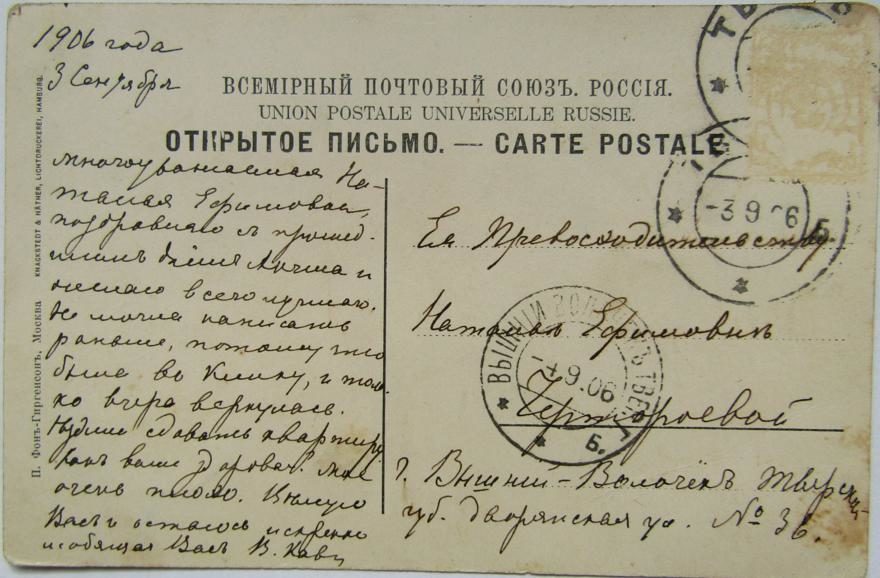 1906 года
3 Сентября
ВСЕМІРНЫЙ ПОЧТОВЫЙ СОЮЗЪ. РОССІЯ.
UNION POSTALE UNIVERSELLE RUSSIE.
ОТКРЫТОЕ ПИСЬМО. — CARTE POSTALE
многоуважаемая На-
талая Ефимовна,
поздравляю съ прошед-
шимъ днемъ Ангела и
желаю всего лучшаго.
Не могла написать
раньше, потому что
была въ Клину, и толь
ко вчера вернулась.
сдавать квартиру
Какъ ваше здоровье? мое
очень плохо. Цѣлую
Васъ и остаюсь искренно
любящая Васъ В.
Ея Превосходительству
Наталіи Ефимовнѣ
Чертороевой
г. Вышній-Волочекъ Тверской
губ. Дворянская ул. № 36.
П. Фонъ-Гиргенсонъ, Москва
KNACKSTEDT & NÄTHER, LICHTDRUCKEREI, HAMBURG.
-3 9 06
Б
ВЫШНІЙ ВОЛОЧЕКЪ ТВЕР.
-4.9.06
Б.